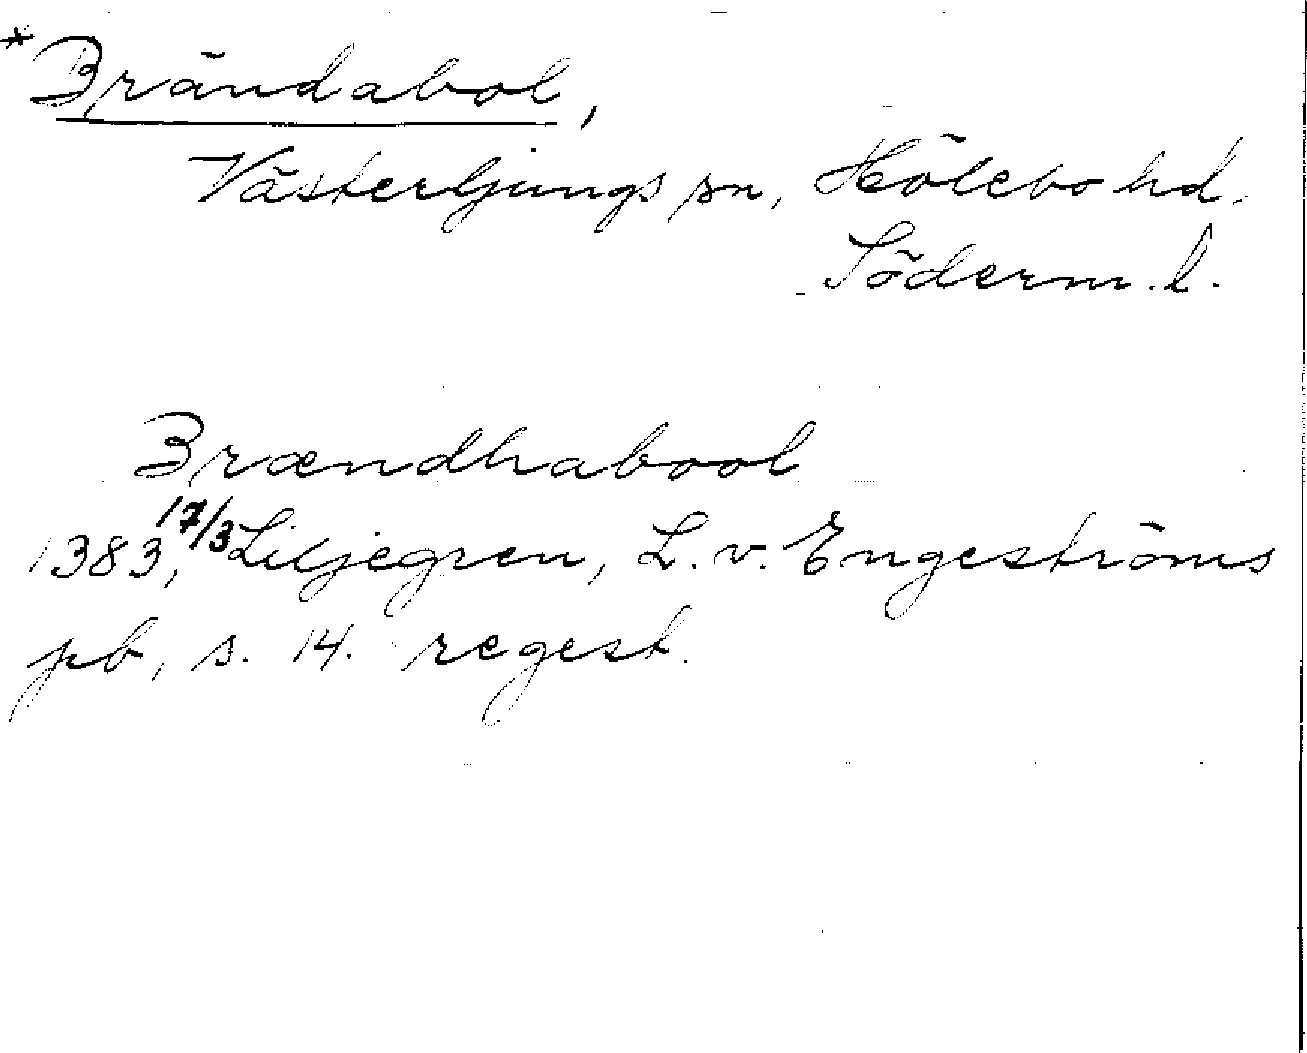 *Brändabol,
Västerljungs sn, Hölebo hd.
Söderm. l.
Brændhabool
1383, 17/3 Liljegren, L. v. Engeströms
pb, s. 14. regest.